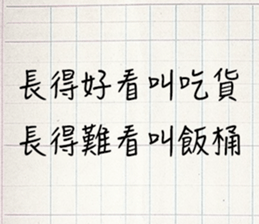 長得好看叫吃貨
長得難看叫飯桶